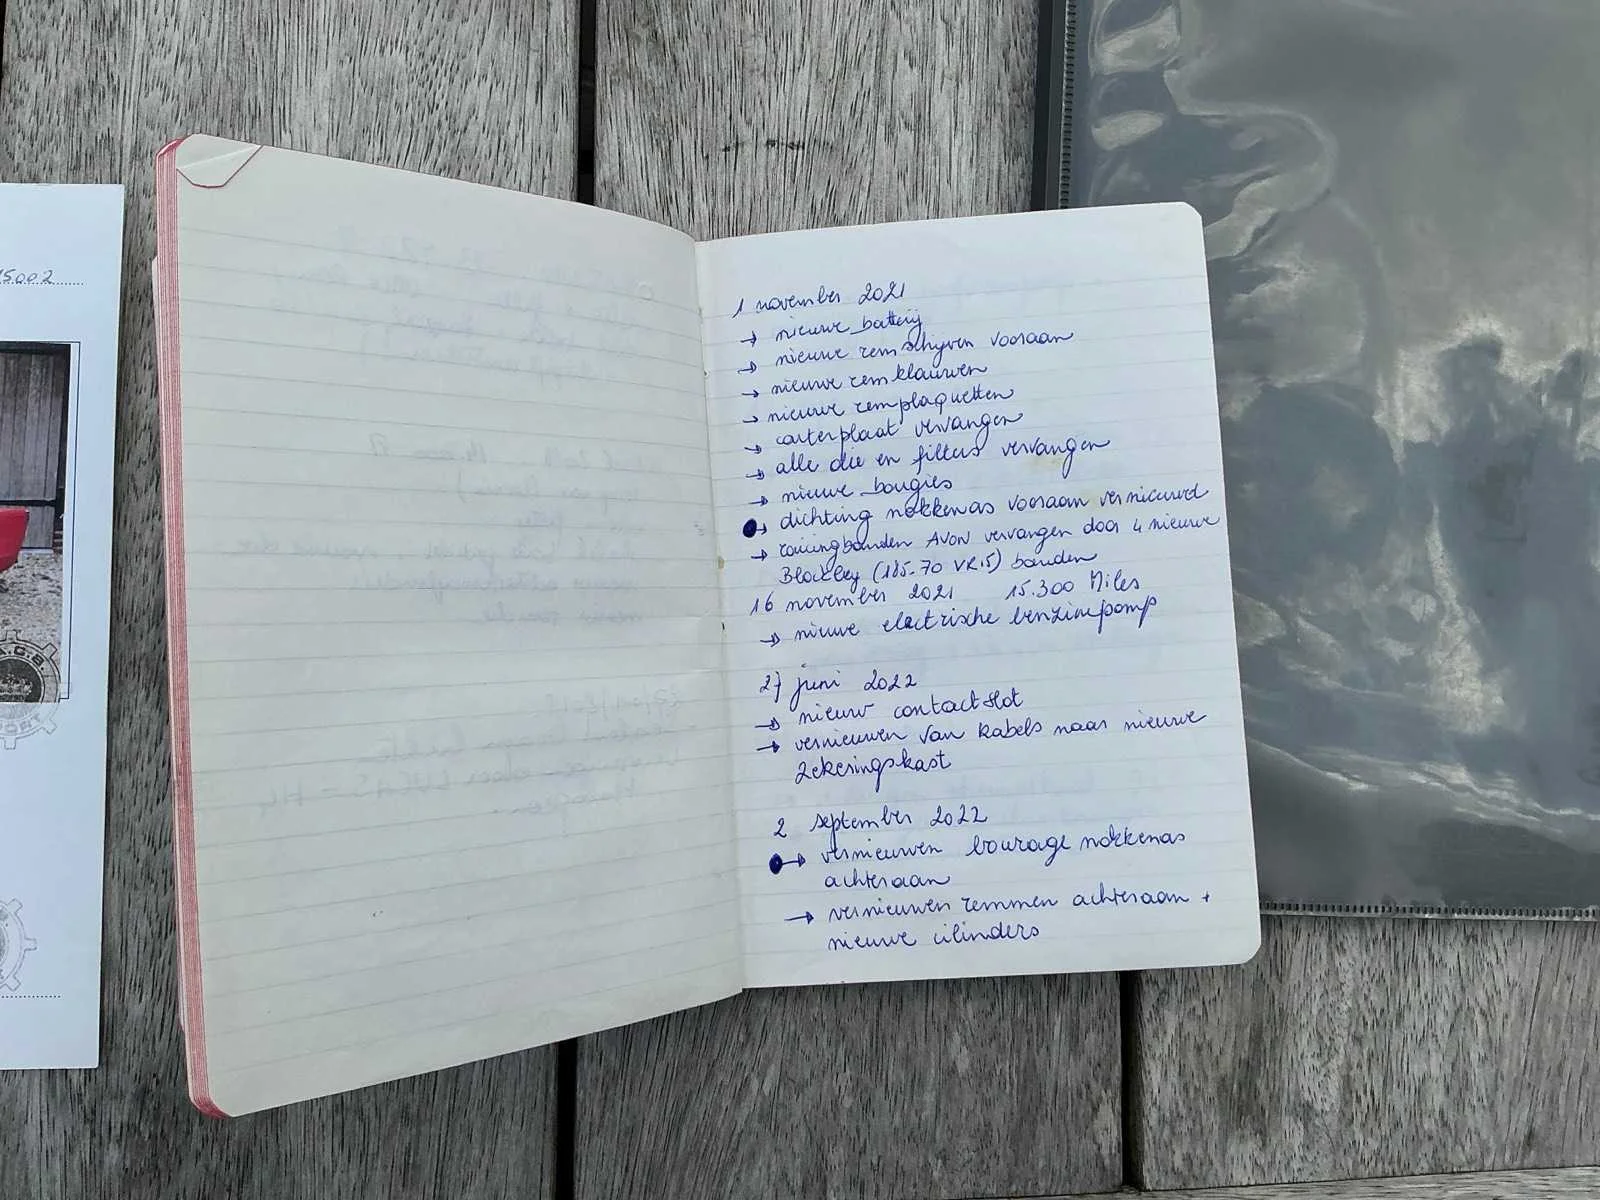 15002
A.C.B.
PORT
1 november 2021
→ nieuwe batterij
→ nieuwe remschijven vooraan
→ nieuwe remklauwen
→ nieuwe remplaquetten
→ carterplaat vervangen
→ alle olie en filters vervangen
→ nieuwe bougies
→ dichting nokkenas vooraan vernieuwd
→ racingbanden AVON vervangen door 4 nieuwe
Blockley (185-70 VR15) banden
16 november 2021 15.300 Miles
→ nieuwe electrische benzinepomp
27 juni 2022
→ nieuw contactslot
→ vernieuwen van kabels naar nieuwe
zekeringskast
2 september 2022
→ vernieuwen bourage nokkenas
achteraan
→ vernieuwen remmen achteraan +
nieuwe cilinders